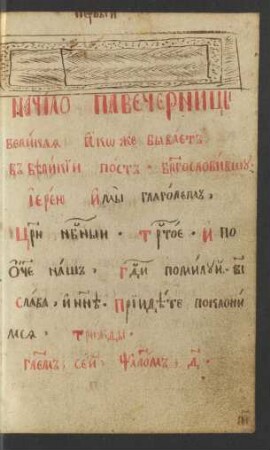 первый
начало павечерницы
великая ӣкоже бываетъ
въ великїи постъ · бл҃гословившу
їерею и мы глаголемъ ,
Цр҃ю нб҃ныи · тр҃тое · и по
О҃че нашъ · гд҃и помилуй · в҃і
слава , и нн҃ѣ · прїидѣте поклони
мся · трижды ·
гл҃емъ , сей · ѱаломъ , д҃ ·